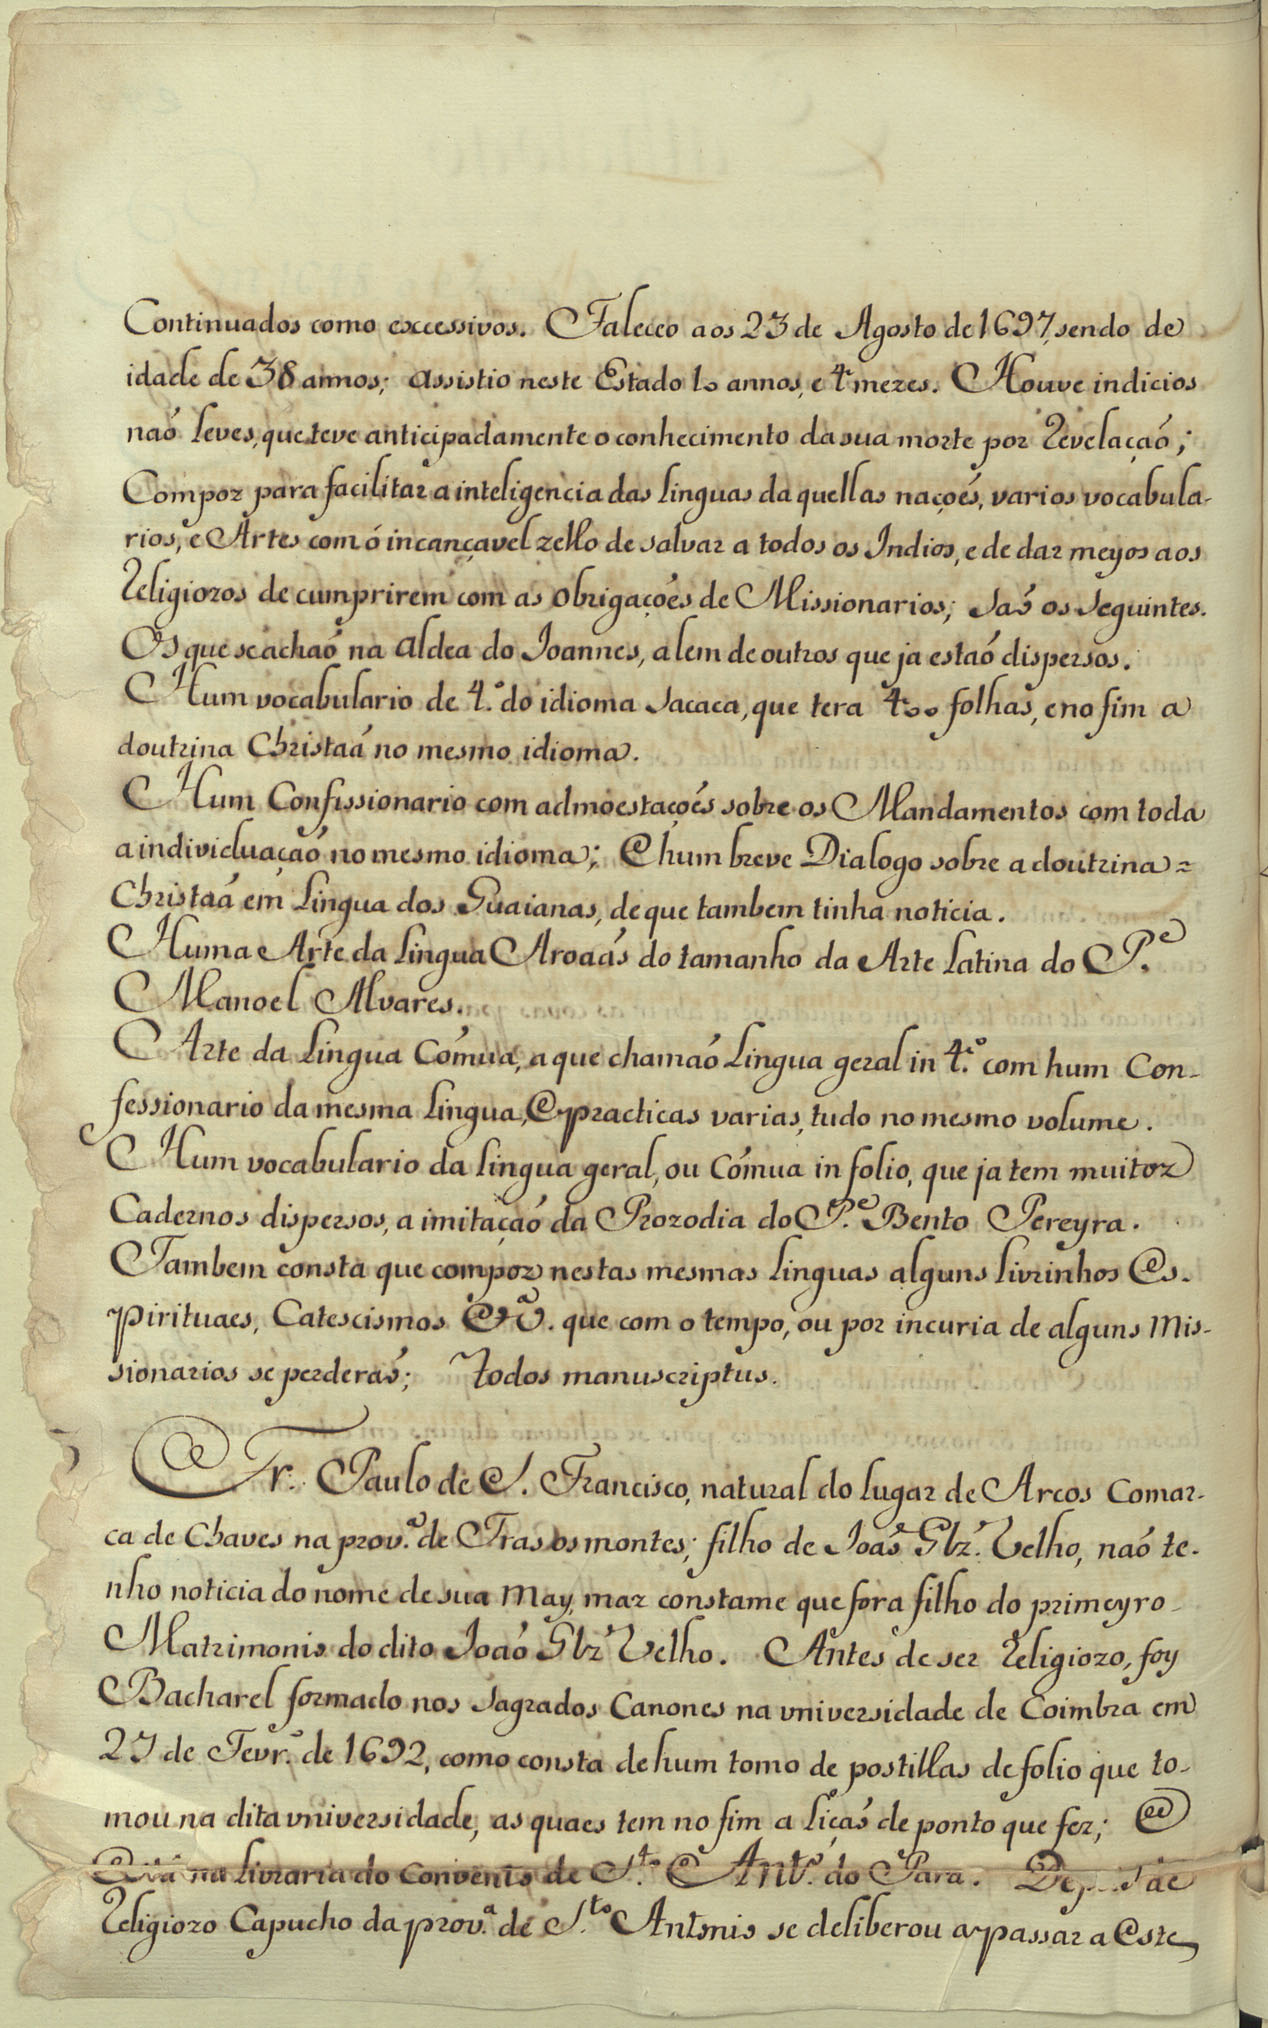 Continuados como excessivos. Faleceo aos 23 de Agosto de 1697, sendo de
idade de 38 annos; assistio neste Estado 10 annos, e 4 mezes. Houve indicios
naõ leves, que teve anticipadamente o conhecimento da sua morte por Revelaçaõ;
Compoz para facilitar a inteligencia das linguas daquellas naçoẽs, varios vocabula-
rios, e Artes com ó incançavel zello de salvar a todos os Indios, e de dar meyos aos
Religiozos de cumprirem com as obrigaçoẽs de Missionarios; Saõ os Seguintes.
Os que se achaõ na aldea do Joannes, alem de outros que ja estaõ dispersos.
Hum vocabulario de 4.º do idioma Sacaca, que tera 400 folhas, e no fim a
doutrina Christaã no mesmo idioma.
Hum Confissionario com admoestaçoẽs sobre os Mandamentos com toda
a individuaçaõ no mesmo idioma; E hum breve Dialogo sobre a doutrina =
Christaã em lingua dos Guaianas, de que tambem tinha noticia.
Huma Arte da lingua Aroaãs do tamanho da Arte Latina do P.e
Manoel Alvares.
Arte da Lingua Cómua, a que chamaõ Lingua geral in 4.º com hum Con-
fessionario da mesma lingua, E practicas varias, tudo no mesmo volume.
Hum vocabulario da lingua geral, ou Cómua in folio, que ja tem muitoz
Cadernos dispersos, a imitaçaõ da Prozodia do P.e Bento Pereyra.
Tambem consta que compoz nestas mesmas linguas alguns livrinhos Es-
pirituaes, Catescismos &.ª que com o tempo, ou por incuria de alguns Mis-
sionarios se perderaõ; Todos manuscriptus.
Fr. Paulo de S. Francisco, natural do lugar de Arcos Comar-
ca de Chaves na prov.ª de Trasosmontes; filho de Joaõ Glz.' Velho, naõ te-
nho noticia do nome de sua May, maz constame que fora filho do primeyro
Matrimonio do dito Joaõ Glz' Velho. Antes de ser Religiozo, foy
Bacharel formado nos Sagrados Canones na universidade de Coimbra em
27 de Fevr.º de 1692, como consta de hum tomo de postillas de folio que to-
mou na dita universidade, as quaes tem no fim a liçaõ de ponto que fez; E
Está na livraria do Convento de S.to Ant.º do Para. de
Religiozo Capucho da prov.ª de S.to Antonio se deliberou a passar a Este